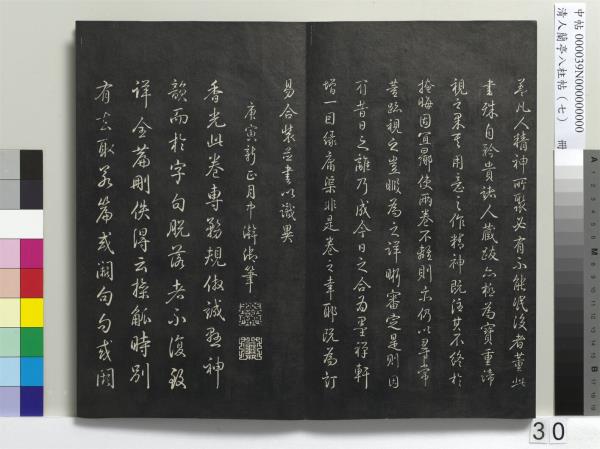 蓋凡人精神所聚必有不能泯沒者董此
書殊自矜貴諸人藏跋亦極為寶重諦
視之果其用意之作精神既注其不終於
掩晦固宜鄙使兩卷不離則亦仍以尋常
蓋跡視之豈暇為之詳晰審定是則因
前昔日之離乃成今日之合為墨禪軒
增一因緣庸渠非是卷之幸耶既為訂
易合裝並書以識異
庚寅新正月中澣御筆
香光此卷專務規倣誠懸神
韻而於字句脫落者不復致
詳全篇刪佚得云操觚時別
有去取若篇或闕句句或闕
中帖 000039N000000000
清人蘭亭八柱帖（七） 冊
30